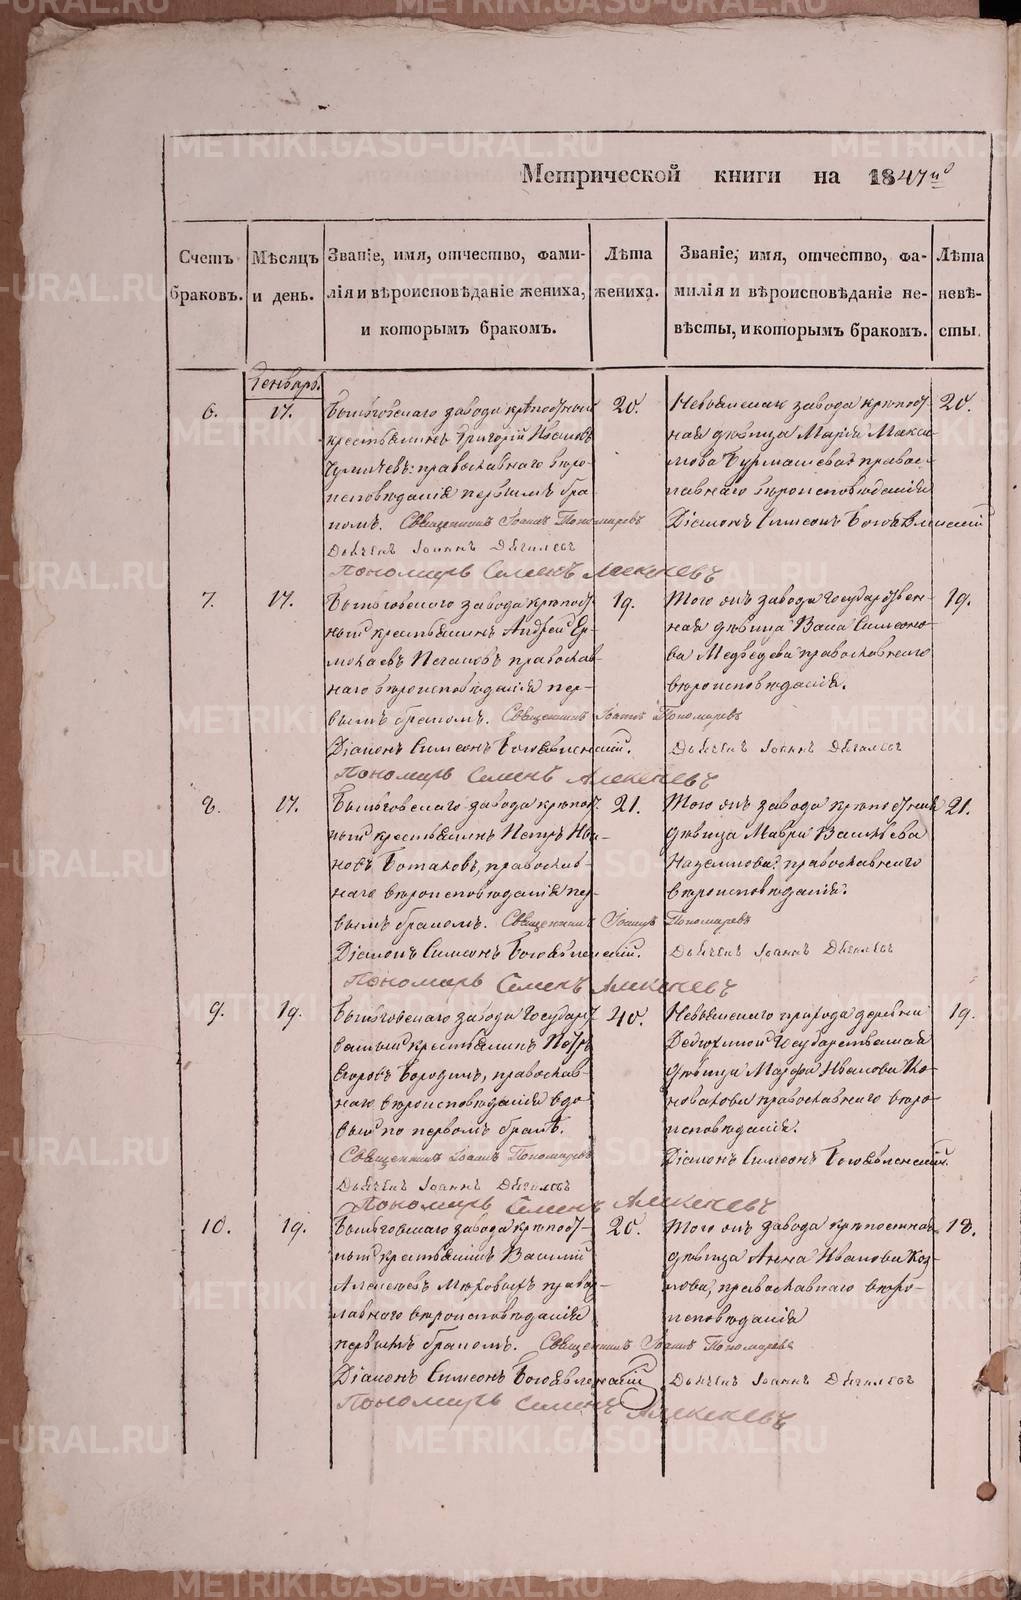 Метрической книги на 1847й
Счетъ браковъ.
Мѣсяцъ и день.
Званіе, имя, отчество, фами-
лія и вѣроисповѣданіе жениха,
и которымъ бракомъ.
Лѣта
жениха.
Званіе, имя, отчество, фа-
милія и вѣроисповѣданіе не-
вѣсты, и которымъ бракомъ.
Лѣта
невѣ-
сты.
Генварь.
6.
17.
завода крѣпостный
крестьянинъ Григорій Ивановъ
православнаго вѣро-
исповѣданія первымъ бра
комъ. Священникъ Іоаннъ Пономаревъ
Дьячекъ Іоаннъ Дягилевъ
Пономарь Семенъ Алексѣевъ
20.
завода крѣпост
ная дѣвица Марія Макси-
мова Бурмашева православ-
лавнаго вѣроисповѣданія
Діаконъ Симеонъ Богоявленскій
20.
7.
17.
завода крѣпост
ный крестьянинъ Андрей Ер-
молаевъ православ-
наго вѣроисповѣданія пер-
вымъ бракомъ. Священникъ Іоаннъ Пономаревъ
Діаконъ Симеонъ Богоявленскій.
Пономарь Семенъ Алексѣевъ
19.
Того жъ завода государствен-
ная дѣвица Симеоно-
ва Медведева православнаго
вѣроисповѣданія.
Дьячекъ Іоаннъ Дягилевъ
19.
8.
17.
завода крѣпост
ный крестьянинъ Петръ Ива-
новъ православ-
наго вѣроисповѣданія пер-
вымъ бракомъ. Священникъ Іоаннъ Пономаревъ
Діаконъ Симеонъ Богоявленскій.
Пономарь Семенъ Алексѣевъ
21.
Того жъ завода крѣпостная
дѣвица Мавра Васильева
православнаго
вѣроисповѣданія.
Дьячекъ Іоаннъ Дягилевъ
21.
9.
19.
завода государст
венный крестьянинъ Петръ
Егоровъ Бородинъ, православ-
наго вѣроисповѣданія вдо-
вый по первомъ бракѣ.
Священникъ Іоаннъ Пономаревъ
Дьячекъ Іоаннъ Дягилевъ
Пономарь Семенъ Алексѣевъ
40.
деревни
Государственная
дѣвица Марфа Иванова Ко-
новалова православнаго вѣро-
исповѣданія.
Діаконъ Симеонъ Богоявленскій.
19.
10.
19.
завода крѣпост-
ный крестьянинъ Василій
Алексѣевъ правос-
лавнаго вѣроисповѣданія
первымъ бракомъ. Священникъ Іоаннъ Пономаревъ
Діаконъ Симеонъ Богоявленскій
Пономарь Семенъ Алексѣевъ
20.
Того жъ завода крѣпостная
дѣвица Анна Иванова Коз-
лова, православнаго вѣро-
исповѣданія
Дьячекъ Іоаннъ Дягилевъ
18.
METRIKI.GASO-URAL.RU